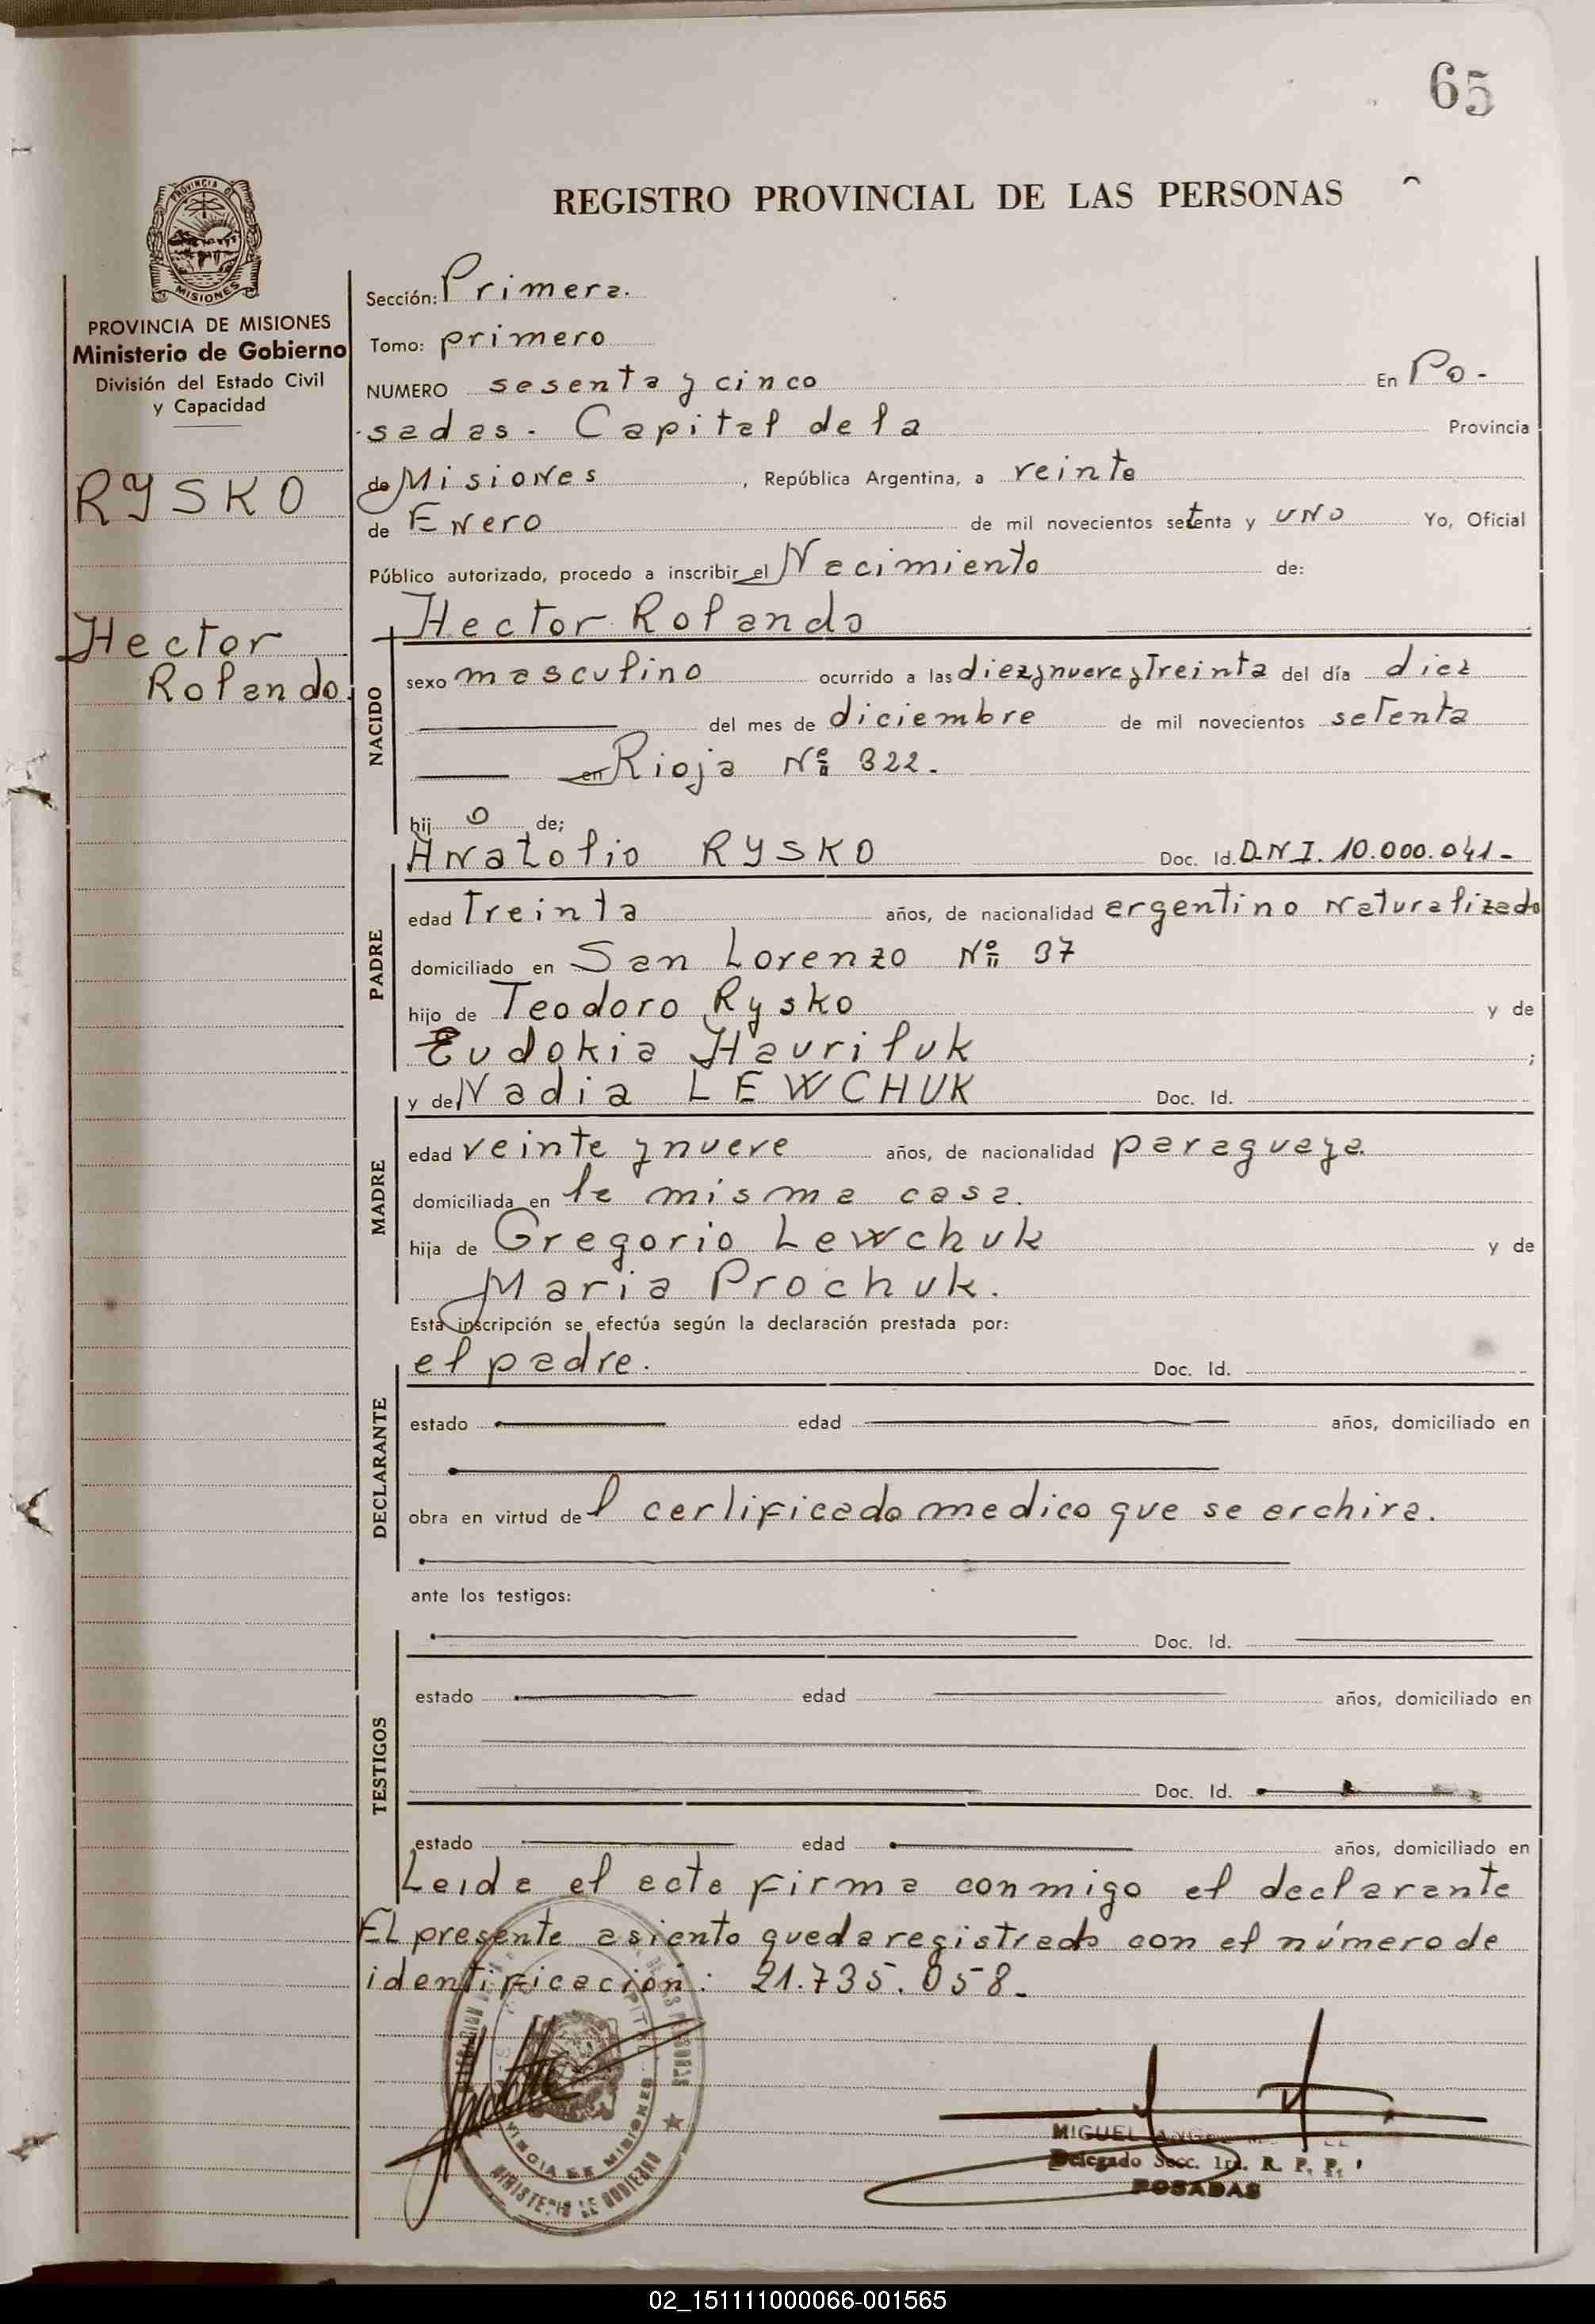 65
REGISTRO PROVINCIAL DE LAS PERSONAS
PROVINCIA DE MISIONES
Ministerio de Gobierno
División del Estado Civil
y Capacidad
RYSKO
Hector
Rolando.
Sección: Primera.
Tomo: primero
NUMERO sesenta y cinco En Po-
sadas. Capital de la Provincia
de Misiones, República Argentina, a veinte
de Enero de mil novecientos setenta y uno Yo, Oficial
Público autorizado, procedo a inscribir el Nacimiento de:
Hector Rolando
NACIDO
sexo masculino ocurrido a las diez y nueve y Treinta del día diez
del mes de diciembre de mil novecientos setenta
en Rioja Nº 322.
hijo de;
PADRE
Anatolio RYSKO Doc. Id. D.N.I. 10.000.041-
edad Treinta años, de nacionalidad argentino Naturalizado
domiciliado en San Lorenzo Nº 37
hijo de Teodoro Rysko y de
Eudokia Hauriluk ;
MADRE
y de Nadia LEWCHUK Doc. Id.
edad veinte y nueve años, de nacionalidad paraguaya.
domiciliada en la misma casa.
hija de Gregorio Lewchuk y de
Maria Prochuk.
Esta inscripción se efectúa según la declaración prestada por:
DECLARANTE
el padre. Doc. Id.
estado edad años, domiciliado en
obra en virtud del certificado medico que se archiva.
ante los testigos:
TESTIGOS
Doc. Id.
estado edad años, domiciliado en
Doc. Id.
estado edad años, domiciliado en
Leida el acta firma conmigo el declarante
El presente asiento queda registrado con el número de
identificación: 21.735.058.
MINISTERIO DE GOBIERNO
MIGUEL
Delegado Secc. 1ra. R. P. P.
POSADAS
02_151111000066-001565